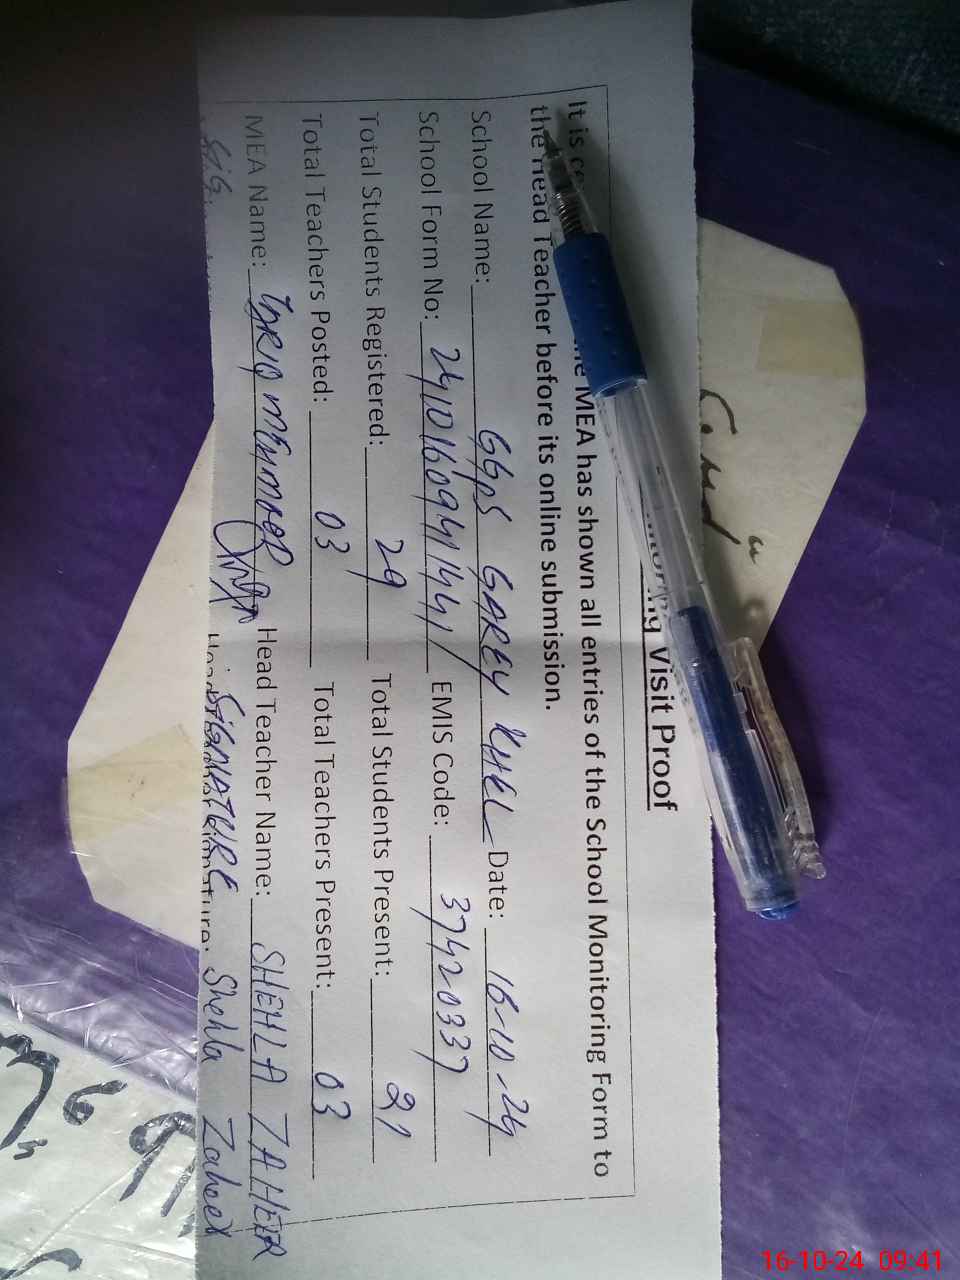 ng Visit Proof
It is ce he MEA has shown all entries of the School Monitoring Form to
the Head Teacher before its online submission.
School Name: GGPS GAREY KHEL Date: 16-10-24
School Form No: EMIS Code: 37420337
Total Students Registered: 29 Total Students Present: 21
Total Teachers Posted: 03 Total Teachers Present: 03
MEA Name: TARIQ MEHMOOD Head Teacher Name: SHEHLA ZAHEER
SIG SIGNATURE Shehla Zaheer
16-10-24 09:41